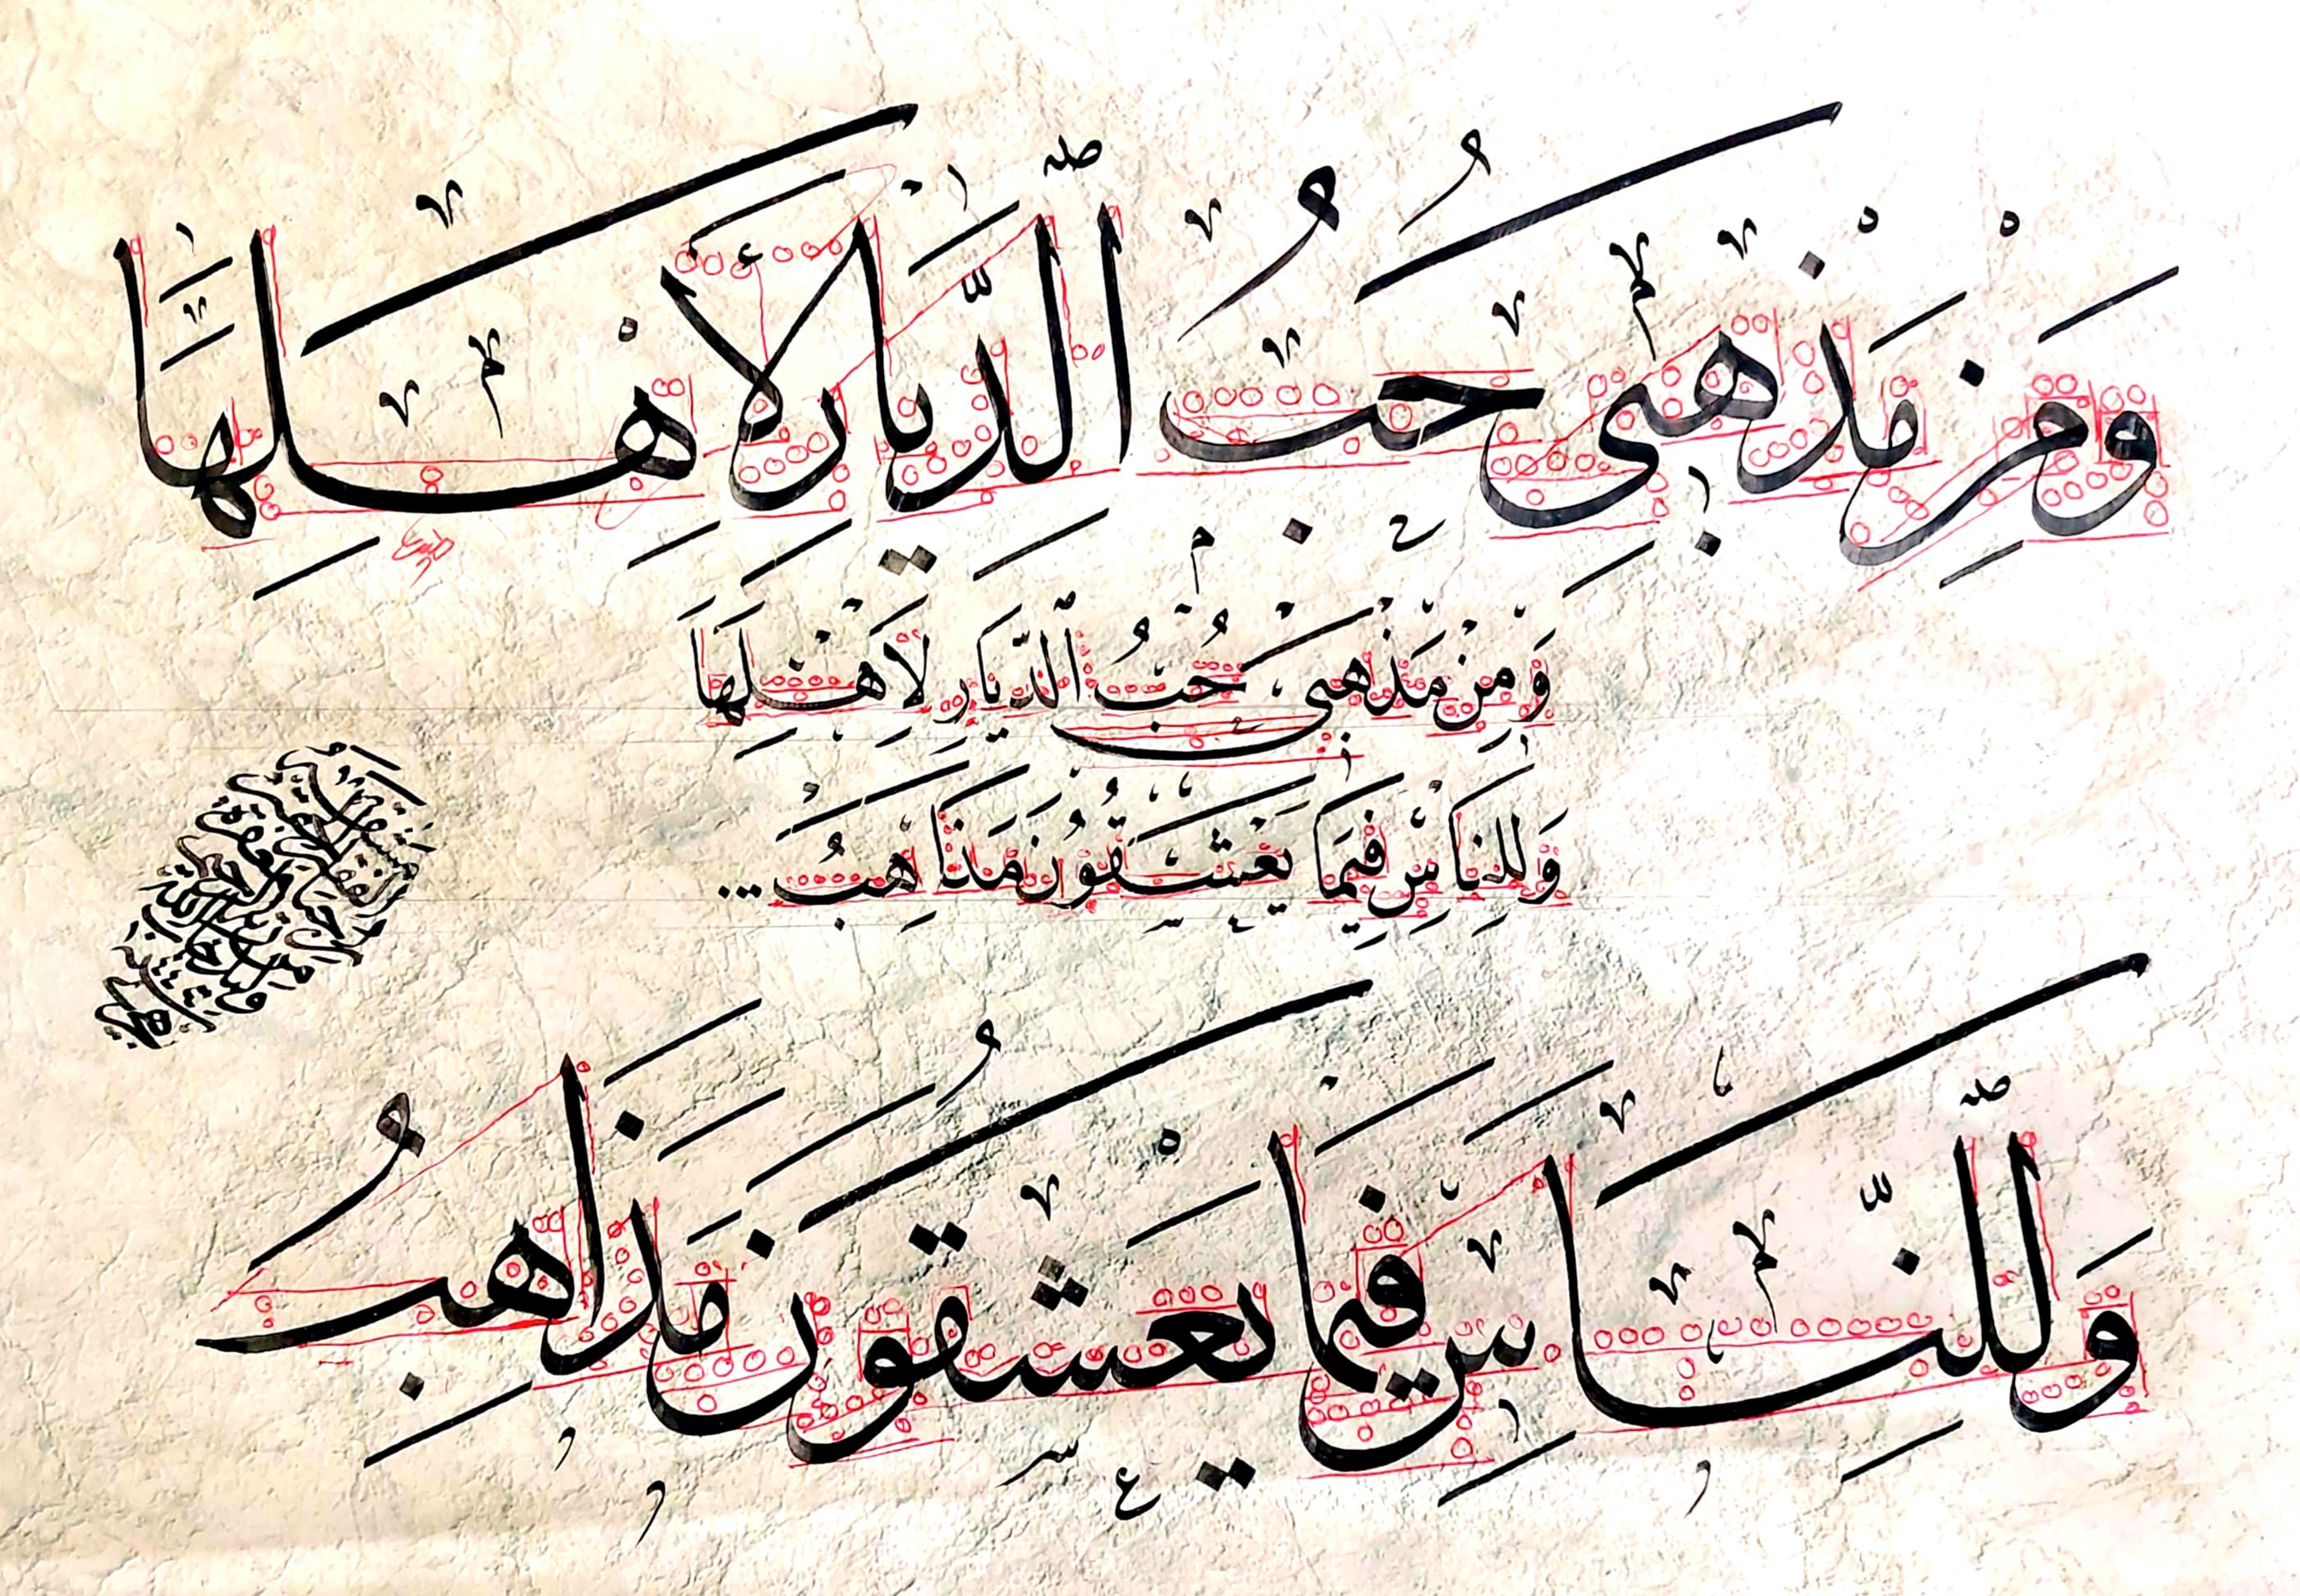 وَمِنْ مَذْهَبِي حُبُّ ٱلدِّيَارِ لِأَهْلِهَا
وَمِنْ مَذْهَبِي حُبُّ ٱلدِّيَارِ لِأَهْلِهَا
وَلِلنَّاسِ فِيمَا يَعْشَقُونَ مَذَاهِبُ...
وَلِلنَّاسِ فِيمَا يَعْشَقُونَ مَذَاهِبُ